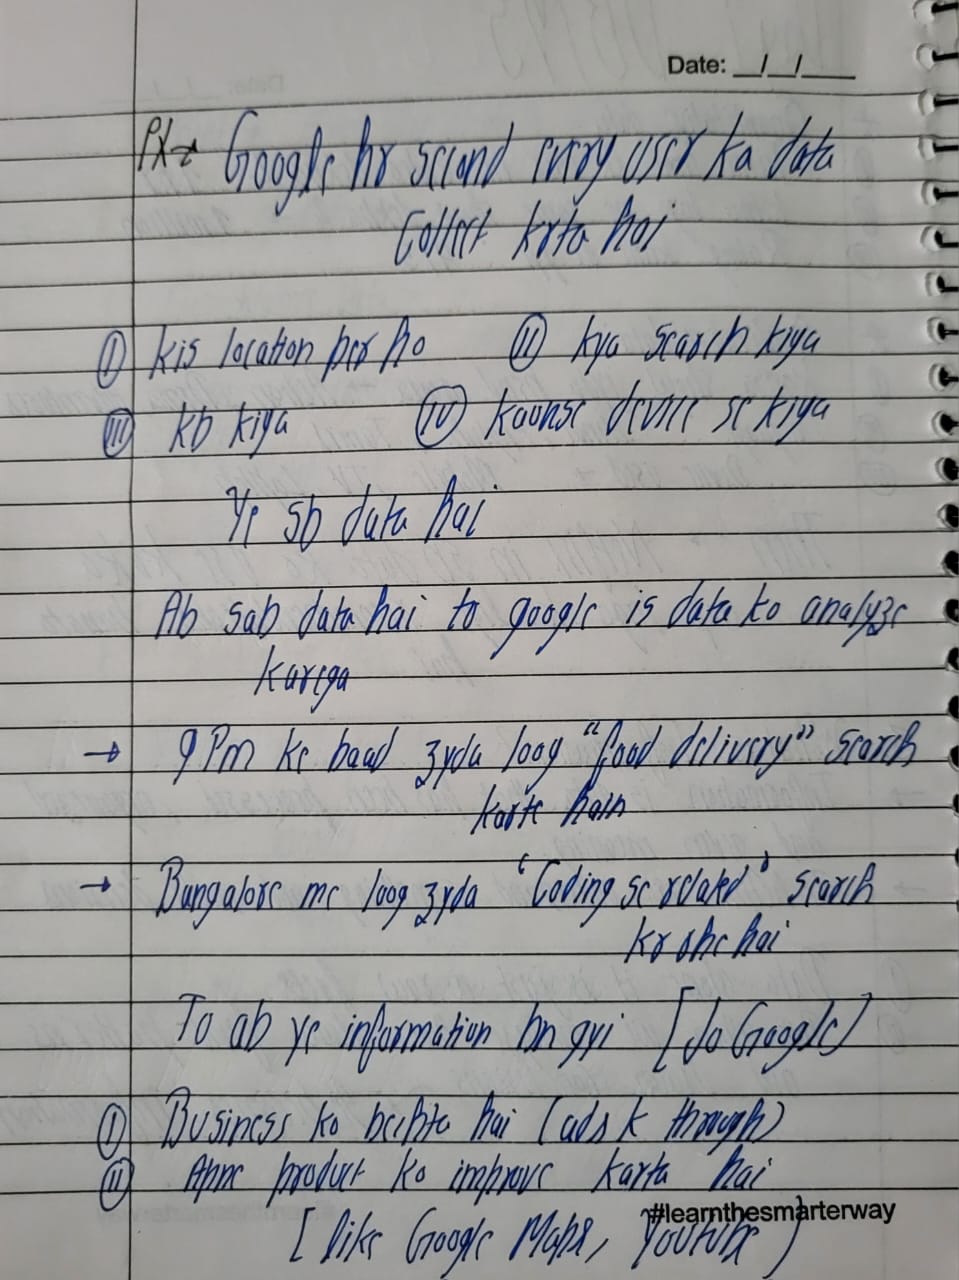 Date: __/__/____
Ex→ Google hr second every user ka data
Collect krta hai
(I) kis location per ho (II) kya search kiya
(III) kb kiya (IV) kaunse device se kiya
Ye sb data hai
Ab sab data hai to google is data ko analyze
karega
→ 9 Pm ke baad zyda loog "food delivery" search
karte hain
→ Bangalore me loog zyda 'Coding se related' search
kr rhe hai
To ab ye information bn gyi [Jo Google]
(I) Business ko bechta hai (ads k through)
(II) Apne product ko improve karta hai
[like Google Maps, Youtube]
#learnthesmarterway